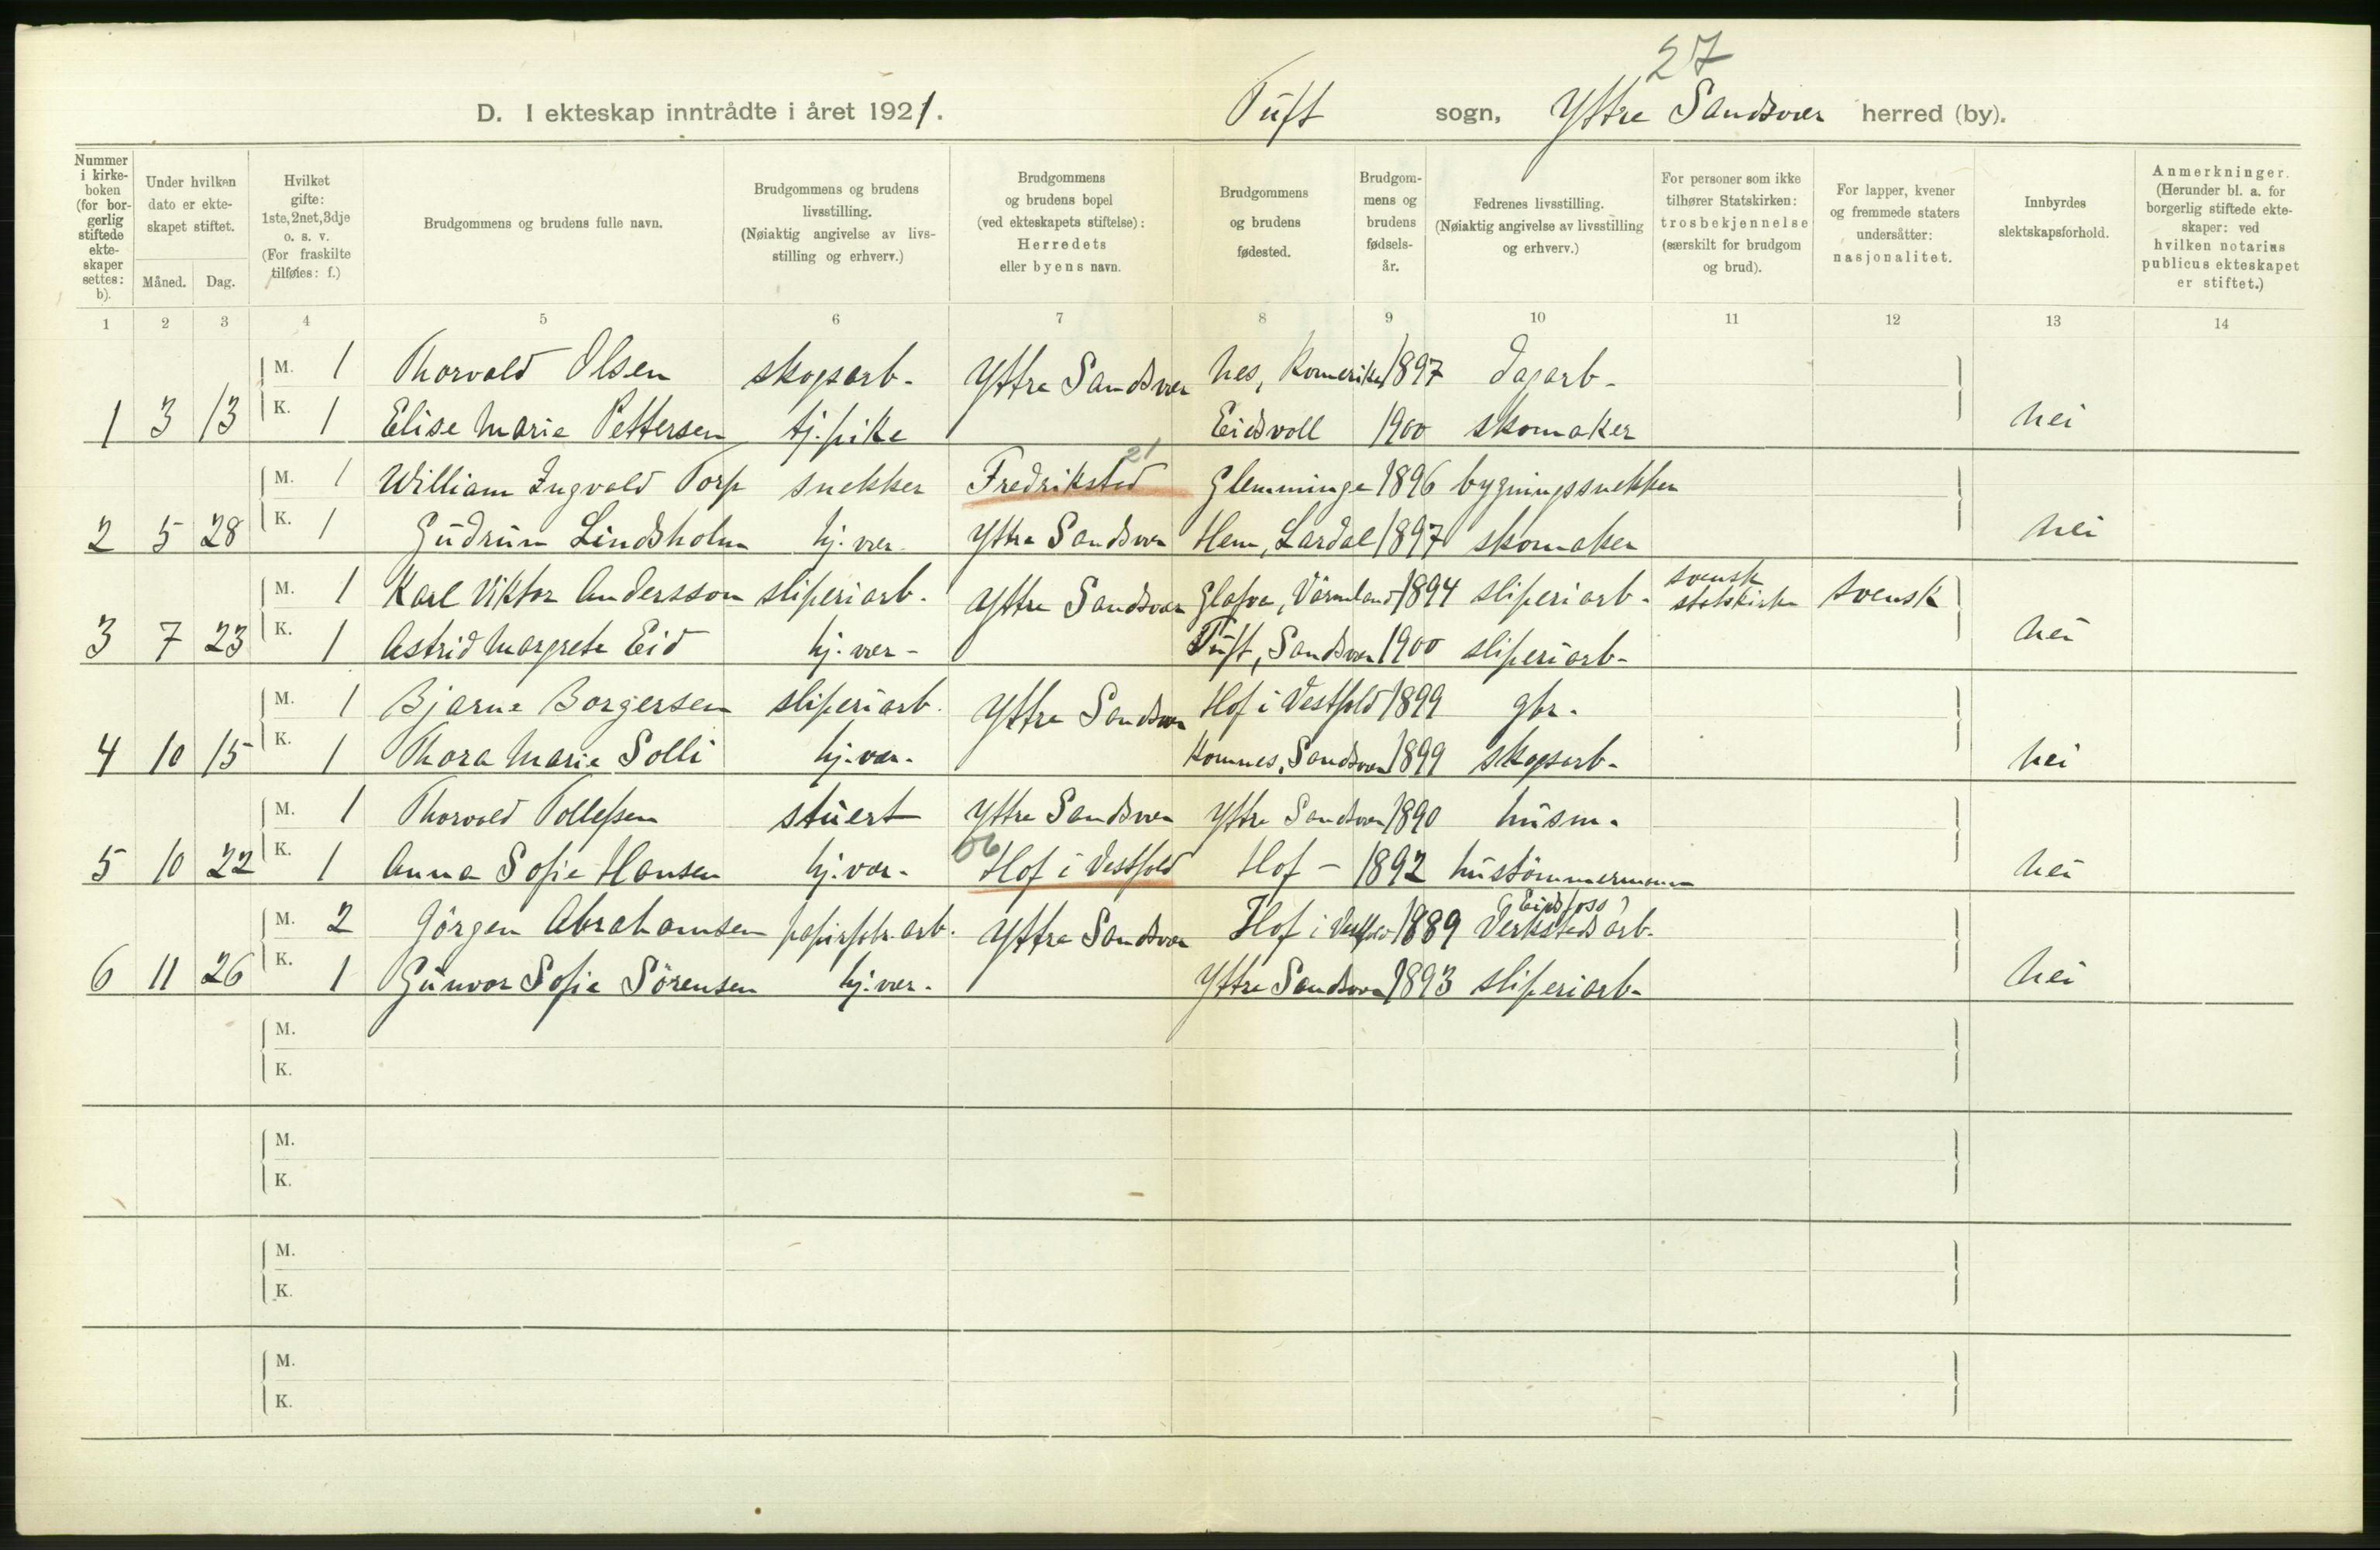 27
D. I ekteskap inntrådte i året 1921. Tuft sogn, Yttre Sandsvær herred (by).
Nummer i kirke-boken (for bor-gerlig stiftede ekte-skaper settes: b).
Under hvilken dato er ekte-skapet stiftet.
Måned. Dag.
Hvilket gifte: 1ste, 2net, 3dje o. s. v. (For fraskilte tilføies: f.)
Brudgommens og brudens fulle navn.
Brudgommens og brudens livsstilling. (Nøiaktig angivelse av livs-stilling og erhverv.)
Brudgommens og brudens bopel (ved ekteskapets stiftelse): Herredets eller byens navn.
Brudgommens og brudens fødested.
Brudgom-mens og brudens fødsels-år.
Fedrenes livsstilling. (Nøiaktig angivelse av livsstilling og erhverv.)
For personer som ikke tilhører Statskirken: trosbekjennelse (særskilt for brudgom og brud).
For lapper, kvener og fremmede staters undersåtter: nasjonalitet.
Innbyrdes slektskapsforhold.
Anmerkninger. (Herunder bl. a. for borgerlig stiftede ekte-skaper: ved hvilken notarius publicus ekteskapet er stiftet.)
1 2 3 4 5 6 7 8 9 10 11 12 13 14
M. 1 Thorvald Olsen skogsarb. Yttre Sandsvær Nes, Romerike 1897 dagarb.
1 3 13 K. 1 Elise Marie Pettersen tj.pike Eidsvoll 1900 skomaker nei
21
M. 1 William Ingvald Torp snekker Fredrikstad Glemminge 1896 bygningssnekker
2 5 28 K. 1 Gudrun Lindsholm hj.vær. Yttre Sandsvær Hem, Lardal 1897 skomaker nei
M. 1 Karl Viktor Andersson sliperiarb. Yttre Sandsvær Glafva, Värmland 1894 sliperiarb. svensk statskirke svensk
3 7 23 K. 1 Astrid Margrete Eid hj.vær. Tuft, Sandsvær 1900 sliperiarb. nei
M. 1 Bjarne Borgersen sliperiarb. Yttre Sandsvær Hof i Vestfold 1899 gbr.
4 10 15 K. 1 Thora Marie Solli hj.vær. Komnes, Sandsvær 1899 skogsarb. nei
M. 1 Thorvald Tollefsen stuert Yttre Sandsvær Yttre Sandsvær 1890 husm.
66
5 10 22 K. 1 Anna Sofie Hansen hj.vær. Hof i Vestfold Hof - 1892 hustömmermann nei
(Eidsfoss)
M. 2 Jörgen Abrahamsen papirfabr.arb. Yttre Sandsvær Hof i Vestfold 1889 Verkstedsarb.
6 11 26 K. 1 Gunvor Sofie Sörensen hj.vær. Yttre Sandsvær 1893 sliperiarb. nei
M.
K.
M.
K.
M.
K.
M.
K.